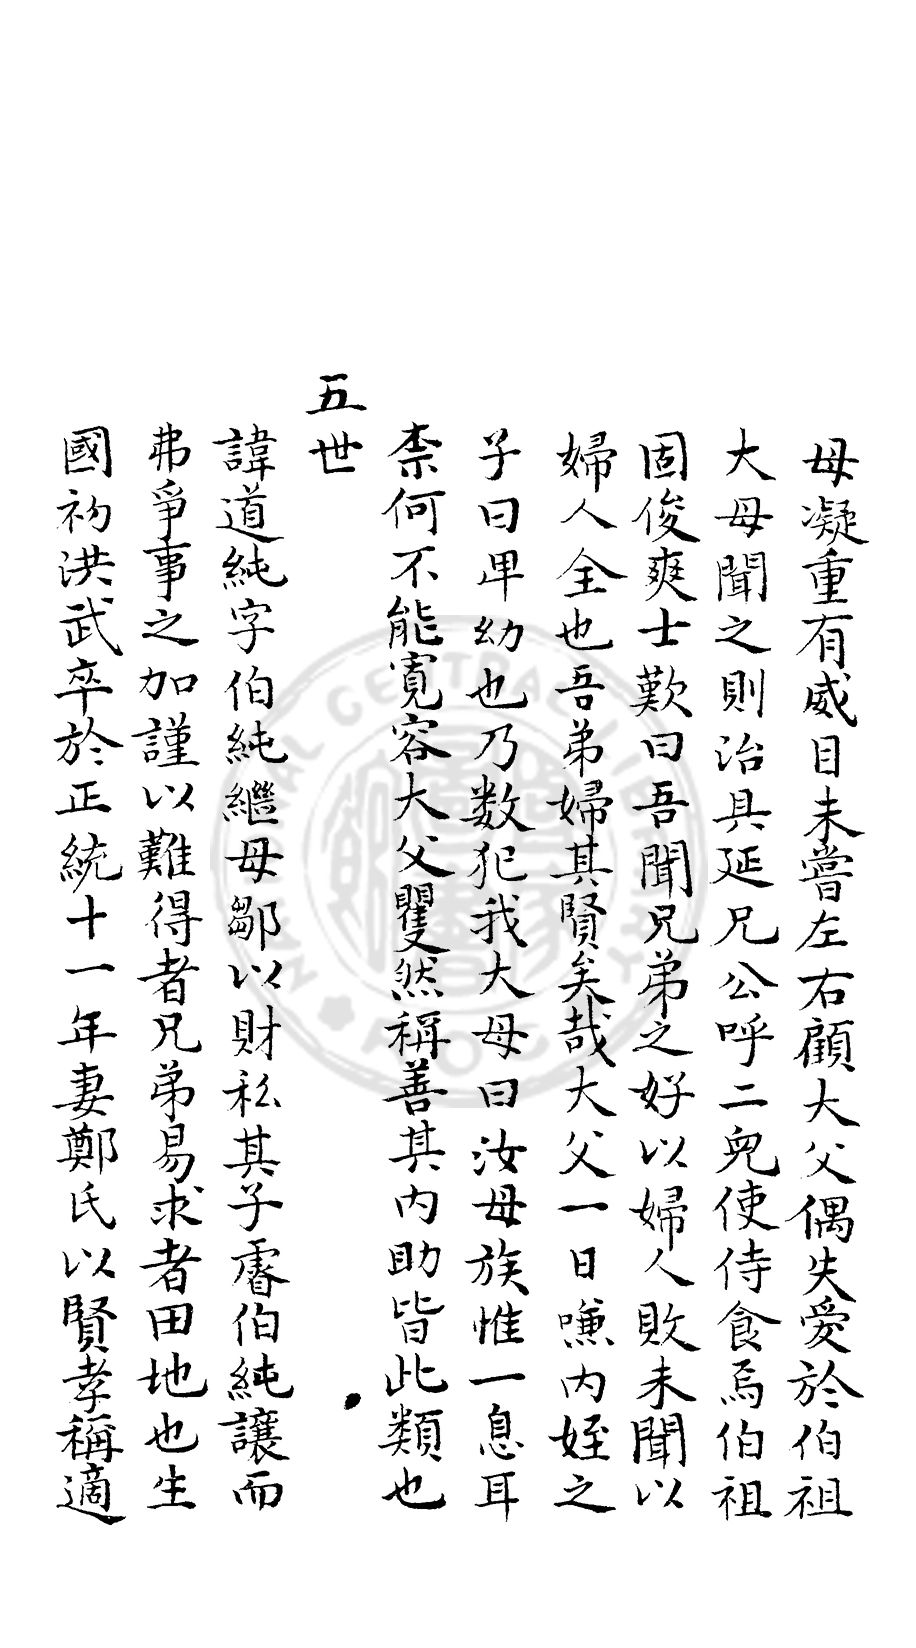 母凝重有威目未嘗左右顧大父偶失愛於伯祖
大母聞之則治具延兄公呼二兒使侍食焉伯祖
固俊爽士歎曰吾聞兄弟之好以婦人敗未聞以
婦人全也吾弟婦其賢矣哉大父一日嗛內姪之
子曰卑幼也乃数犯我大母曰汝母族惟一息耳
柰何不能寬容大父瞿然稱善其內助皆此類也
五世
諱道純字伯純繼母鄒以財私其子睿伯純讓而
弗爭事之加謹以難得者兄弟易求者田地也生
國初洪武卒於正統十一年妻鄭氏以賢孝稱適
NATIONAL CENTRAL LIBRARY